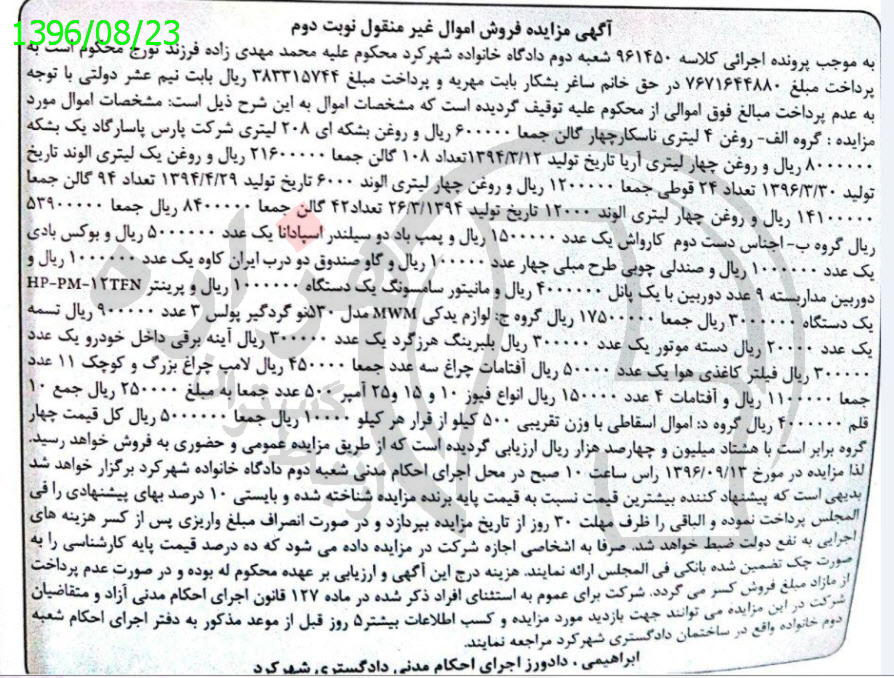 1396/08/23
آگهی مزایده فروش اموال غیر منقول نوبت دوم
به موجب پرونده اجرائی کلاسه ۹۶۱۴۵۰ شعبه دوم دادگاه خانواده شهرکرد محکوم علیه محمد مهدی زاده فرزند تورج محکوم است به
پرداخت مبلغ ۷۶۷۱۶۴۴۸۸۰ در حق خانم ساغر بشکار بابت مهریه و پرداخت مبلغ ۳۸۳۳۱۵۷۴۴ ریال بابت نیم عشر دولتی با توجه
به عدم پرداخت مبالغ فوق اموالی از محکوم علیه توقیف گردیده است که مشخصات اموال به این شرح ذیل است: مشخصات اموال مورد
مزایده : گروه الف- روغن ۴ لیتری ناسکارچهار گالن جمعا ۶۰۰۰۰۰ ریال و روغن بشکه ای ۲۰۸ لیتری شرکت پارس پاسارگاد یک بشکه
۸۰۰۰۰۰۰ ریال و روغن چهار لیتری آریا تاریخ تولید ۱۳۹۴/۳/۱۲تعداد ۱۰۸ گالن جمعا ۲۱۶۰۰۰۰۰ ریال و روغن یک لیتری الوند تاریخ
تولید ۱۳۹۶/۳/۳۰ تعداد ۲۴ قوطی جمعا ۱۲۰۰۰۰۰ ریال و روغن چهار لیتری الوند ۶۰۰۰ تاریخ تولید ۱۳۹۴/۴/۲۹ تعداد ۹۴ گالن جمعا
۱۴۱۰۰۰۰۰ ریال و روغن چهار لیتری الوند ۱۲۰۰۰ تاریخ تولید ۲۶/۳/۱۳۹۴ تعداد۴۲ گالن جمعا ۸۴۰۰۰۰۰ ریال جمعا ۵۳۹۰۰۰۰۰
ریال گروه ب- اجناس دست دوم کارواش یک عدد ۱۵۰۰۰۰۰ ریال و پمپ باد دو سیلندر اسپادانا یک عدد ۵۰۰۰۰۰۰ ریال و بوکس بادی
یک عدد ۱۰۰۰۰۰۰ ریال و صندلی چوبی طرح مبلی چهار عدد ۱۰۰۰۰۰۰ ریال و گاو صندوق دو درب ایران کاوه یک عدد ۱۰۰۰۰۰۰ ریال و
دوربین مداربسته ۹ عدد دوربین با یک پانل ۴۰۰۰۰۰۰ ریال و مانیتور سامسونگ یک دستگاه ۱۰۰۰۰۰۰ ریال و پرینتر HP-PM-۱۲TFN
یک دستگاه ۳۰۰۰۰۰۰ ریال جمعا ۱۷۵۰۰۰۰۰ ریال گروه ج: لوازم یدکی MWM مدل ۵۳۰نو گردگیر پولس ۳ عدد ۹۰۰۰۰۰ ریال تسمه
یک عدد ۲۰۰۰۰ ریال دسته موتور یک عدد ۳۰۰۰۰۰ ریال بلبرینگ هرزگرد یک عدد ۳۰۰۰۰۰ ریال آینه برقی داخل خودرو یک عدد
۳۰۰۰۰۰ ریال فیلتر کاغذی هوا یک عدد ۵۰۰۰۰ ریال آفتامات چراغ سه عدد جمعا ۴۵۰۰۰۰ ریال لامپ چراغ بزرگ و کوچک ۱۱ عدد
جمعا ۱۱۰۰۰۰۰ ریال و آفتامات ۴ عدد ۱۵۰۰۰۰ ریال انواع فیوز ۱۰ و ۱۵ و۲۵ آمپر ۵۰۰ عدد جمعا به مبلغ ۲۵۰۰۰۰ ریال جمع ۱۰
قلم ۴۰۰۰۰۰۰ ریال گروه د: اموال اسقاطی با وزن تقریبی ۵۰۰ کیلو از قرار هر کیلو ۱۰۰۰۰ ریال جمعا ۵۰۰۰۰۰۰ ریال کل قیمت چهار
گروه برابر است با هشتاد میلیون و چهارصد هزار ریال ارزیابی گردیده است که از طریق مزایده عمومی و حضوری به فروش خواهد رسید.
لذا مزایده در مورخ ۱۳۹۶/۰۹/۱۳ راس ساعت ۱۰ صبح در محل اجرای احکام مدنی شعبه دوم دادگاه خانواده شهرکرد برگزار خواهد شد
بدیهی است که پیشنهاد کننده بیشترین قیمت نسبت به قیمت پایه برنده مزایده شناخته شده و بایستی ۱۰ درصد بهای پیشنهادی را فی
المجلس پرداخت نموده و الباقی را ظرف مهلت ۳۰ روز از تاریخ مزایده بپردازد و در صورت انصراف مبلغ واریزی پس از کسر هزینه های
اجرایی به نفع دولت ضبط خواهد شد. صرفا به اشخاصی اجازه شرکت در مزایده داده می شود که ده درصد قیمت پایه کارشناسی را به
صورت چک تضمین شده بانکی فی المجلس ارائه نمایند. هزینه درج این آگهی و ارزیابی بر عهده محکوم له بوده و در صورت عدم پرداخت
از مازاد مبلغ فروش کسر می گردد. شرکت برای عموم به استثنای افراد ذکر شده در ماده ۱۲۷ قانون اجرای احکام مدنی آزاد و متقاضیان
شرکت در این مزایده می توانند جهت بازدید مورد مزایده و کسب اطلاعات بیشتر۵ روز قبل از موعد مذکور به دفتر اجرای احکام شعبه
دوم خانواده واقع در ساختمان دادگستری شهرکرد مراجعه نمایند.
ابراهیمی . دادورز اجرای احکام مدنی دادگستری شهرکرد